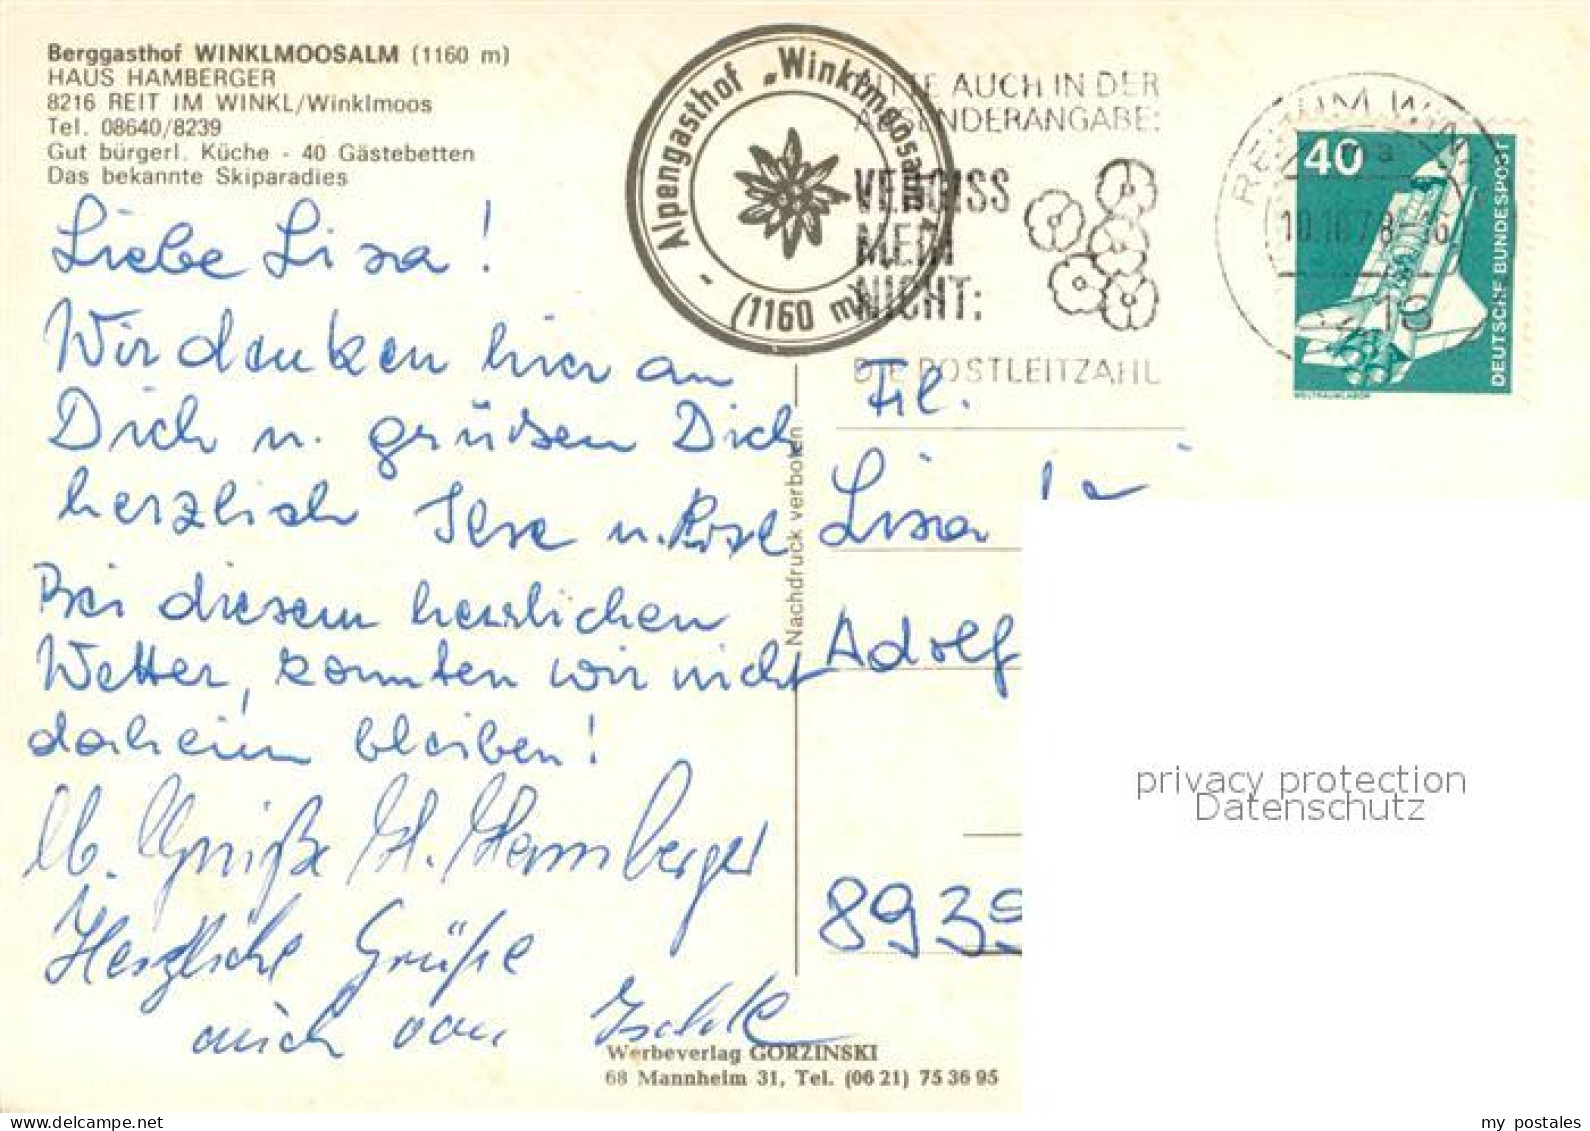 Berggasthof WINKLMOOSALM (1160 m)
HAUS HAMBERGER
8216 REIT IM WINKL/Winklmoos
Tel. 08640/8239
Gut bürgerl. Küche - 40 Gästebetten
Das bekannte Skiparadies
Alpengasthof „Winklmoosalm“
(1160 m)
BITTE AUCH IN DER
ABSENDERANGABE:
VERGISS
MEIN
NICHT:
DIE POSTLEITZAHL
REIT IM WINKL
10.10.78-16
40
DEUTSCHE BUNDESPOST
WELTRAUMLABOR
Liebe Lisa!
Wir denken hier an
Dich u. grüßen Dich
herzlich Ilse u. Rosl
Bei diesem herrlichen
Wetter, konnten wir nicht
daheim bleiben!
lb. Grüße H. Hamberger
Herzliche Grüße
auch von
Nachdruck verboten
Frl.
Lisa
Adolf
8939
privacy protection
Datenschutz
Werbeverlag GORZINSKI
68 Mannheim 31, Tel. (06 21) 75 36 95
my postales